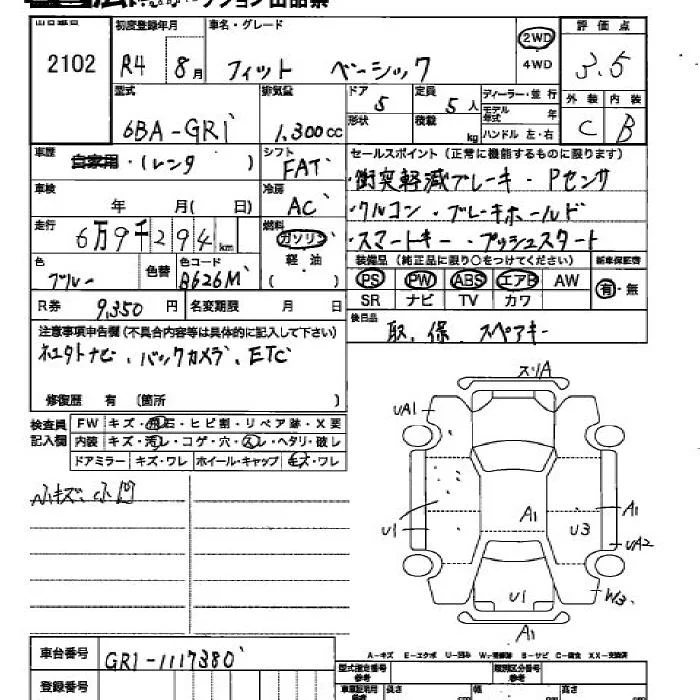 2102
初度登録年月
R4 8月
車名・グレード
フィット ベーシック
2WD
4WD
評価点
3.5
外装 内装
C B
型式
6BA-GR1
排気量
1,300cc
ドア
5
定員
5人
形状
積載
kg
ディーラー・並行
モデル年式
年
ハンドル 左・右
車歴
自家用・(レンタ )
シフト
FAT
車検
年 月( 日)
冷房
AC
走行
6万9千294km
燃料
ガソリン
軽油
( )
色
ブルー
色替
色コード
B626M
R券 9,350円
名変期限 月 日
セールスポイント(正常に機能するものに限ります)
・衝突軽減ブレーキ・Pセンサ
・クルコン・ブレーキホールド
・スマートキー・プッシュスタート
装備品(純正品に限り○をつけてください)
新車保証書
PS PW ABS エアB AW
SR ナビ TV カワ
有・無
後日品
取、保、スペアキー
注意事項申告欄(不具合内容等は具体的に記入して下さい)
社外ナビ、バックカメラ、ETC
修復歴 有 (箇所 )
検査員
記入欄
FW キズ・飛石・ヒビ割・リペア跡・X要
内装 キズ・汚レ・コゲ・穴・スレ・ヘタリ・破レ
ドアミラー キズ・ワレ ホイール・キャップ キズ・ワレ
小キズ、小凹
スリA
UA1
U1
A1
U3
A1
UA2
U1
W3
A1
A-キズ E-エクボ U-凹み W-補修跡 B-サビ C-腐食 XX-交換済
車台番号
GR1-1117380
登録番号
型式指定番号
参考
類別区分番号
参考
長さ
cm
幅
cm
高さ
cm